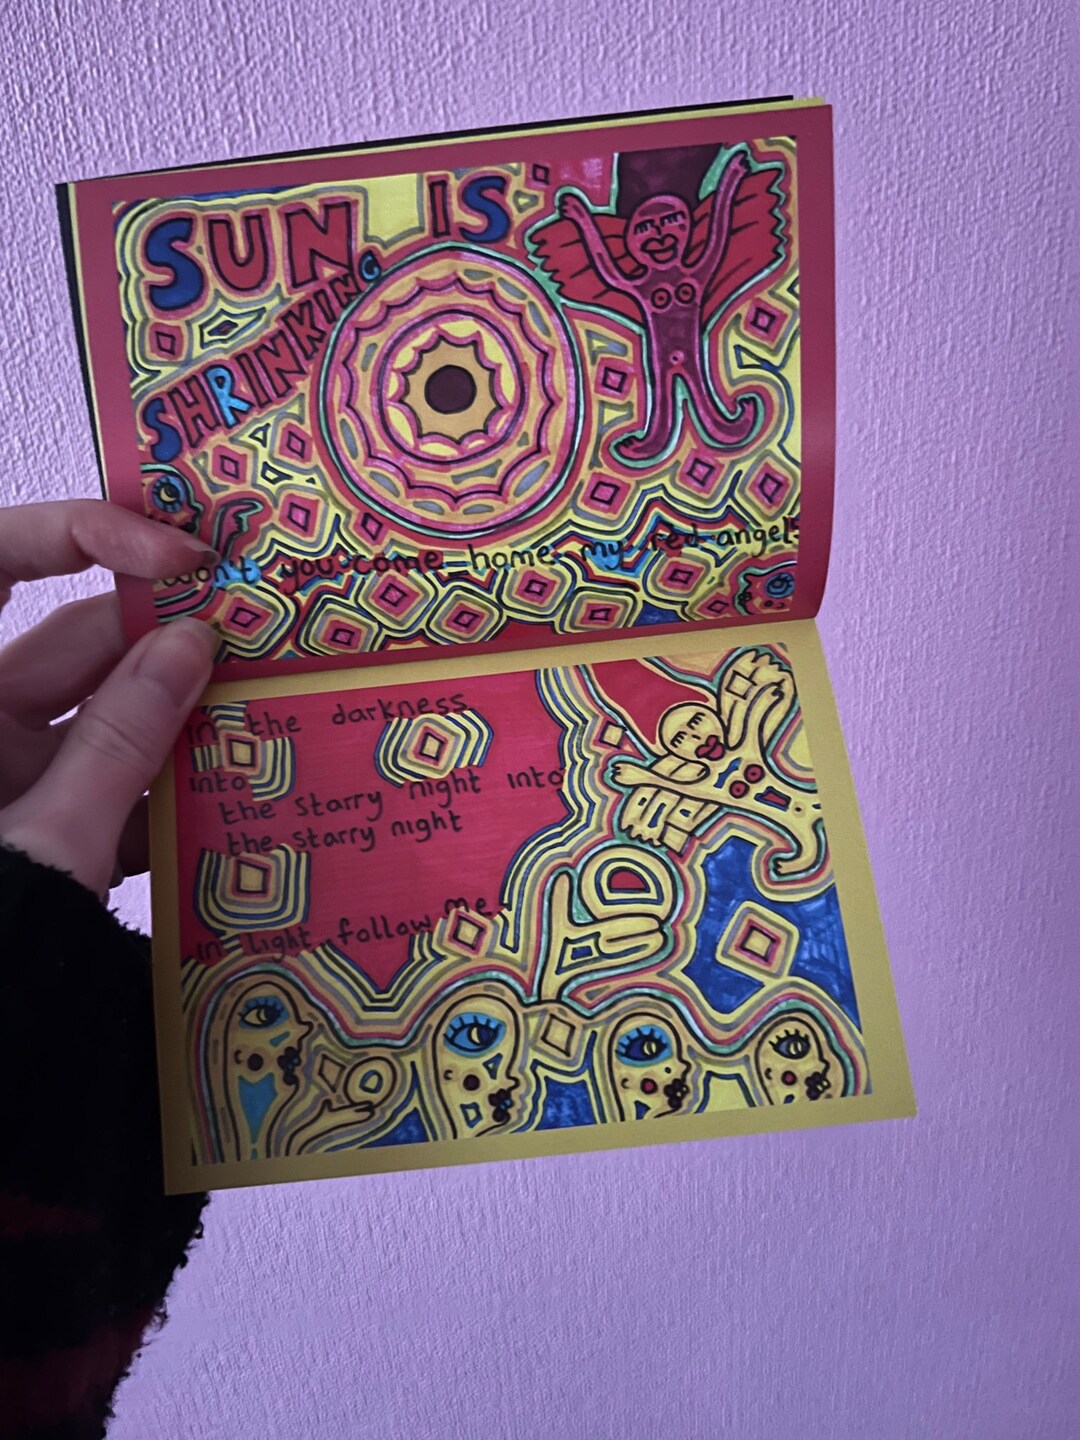 SUN IS
SHRINKING
won't you come home my red angel
in the darkness
into
the starry night into
the starry night
in light follow me